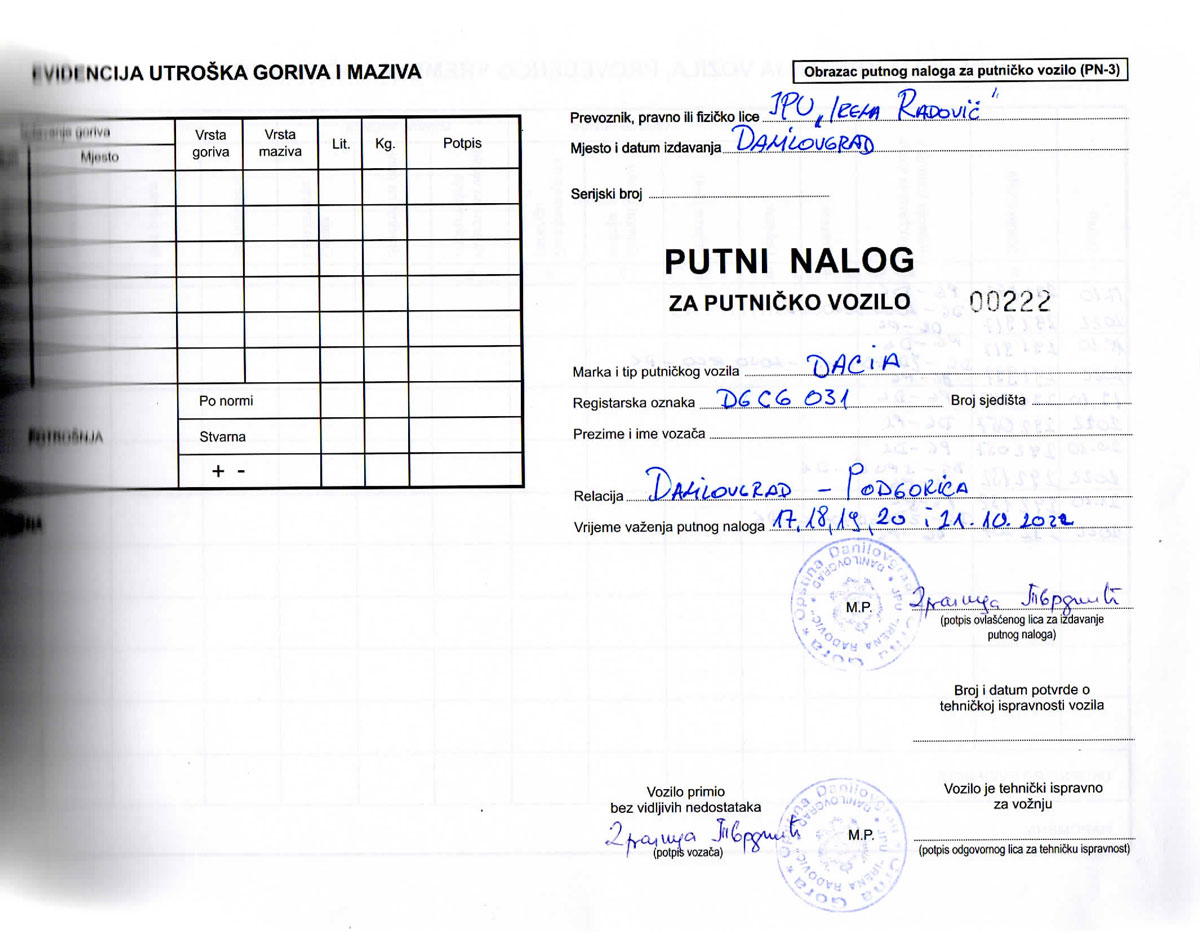 EVIDENCIJA UTROŠKA GORIVA I MAZIVA
goriva
Mjesto
Vrsta goriva
Vrsta maziva
Lit.
Kg.
Potpis
Po normi
POTROŠNJA
Stvarna
+ -
Obrazac putnog naloga za putničko vozilo (PN-3)
Prevoznik, pravno ili fizičko lice JPU „IRENA RADOVIĆ"
Mjesto i datum izdavanja DANILOVGRAD
Serijski broj
PUTNI NALOG
ZA PUTNIČKO VOZILO 00222
Marka i tip putničkog vozila DACIA
Registarska oznaka DGCG 031 Broj sjedišta
Prezime i ime vozača
Relacija DANILOVGRAD - PODGORICA
Vrijeme važenja putnog naloga 17, 18, 19, 20 i 21.10.2022
M.P.
(potpis ovlašćenog lica za izdavanje
putnog naloga)
Broj i datum potvrde o
tehničkoj ispravnosti vozila
Vozilo primio
bez vidljivih nedostataka
(potpis vozača)
M.P.
Vozilo je tehnički ispravno
za vožnju
(potpis odgovornog lica za tehničku ispravnost)